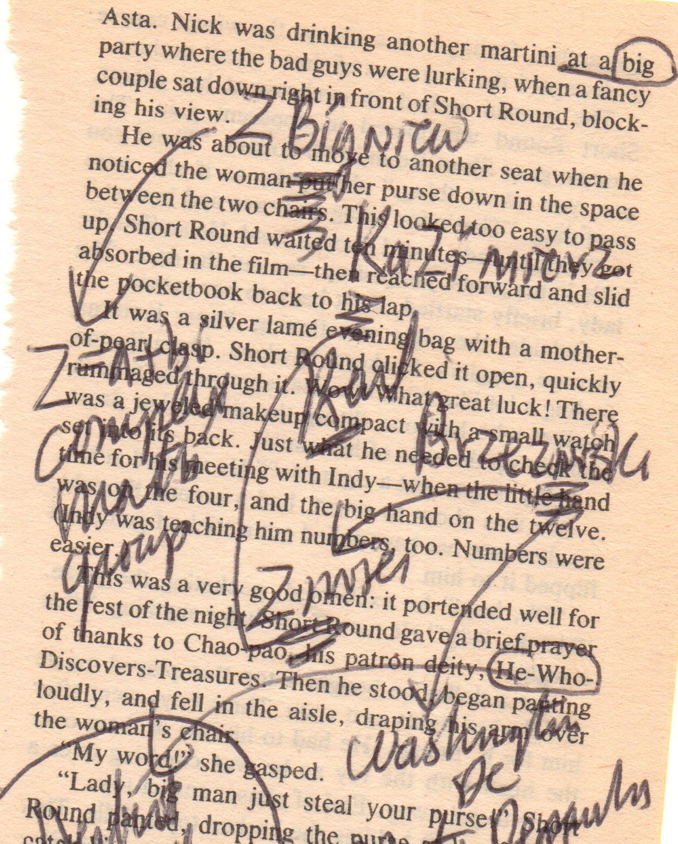 Asta. Nick was drinking another martini at a big
party where the bad guys were lurking, when a fancy
couple sat down right in front of Short Round, block-
ing his view.
ZBigNiew
He was about to move to another seat when he
noticed the woman put her purse down in the space
between the two chairs. This looked too easy to pass
up. Short Round waited ten minutes—until they got
Kazimierz
absorbed in the film—then reached forward and slid
the pocketbook back to his lap.
It was a silver lamé evening bag with a mother-
of-pearl clasp. Short Round clicked it open, quickly
rummaged through it. Wow, what great luck! There
was a jeweled makeup compact with a small watch
Brzezinski
set into its back. Just what he needed to check the
complex
time for his meeting with Indy—when the little hand
math
was on the four, and the big hand on the twelve.
(Indy was teaching him numbers, too. Numbers were
group
easier.)
This was a very good omen: it portended well for
the rest of the night. Short Round gave a brief prayer
of thanks to Chao-pao, his patron deity, He-Who-
Discovers-Treasures. Then he stood, began panting
loudly, and fell in the aisle, draping his arm over
Washington
the woman's chair.
DC
"My word!" she gasped.
"Lady, big man just steal your purse!" Short
Round panted, dropping the purse